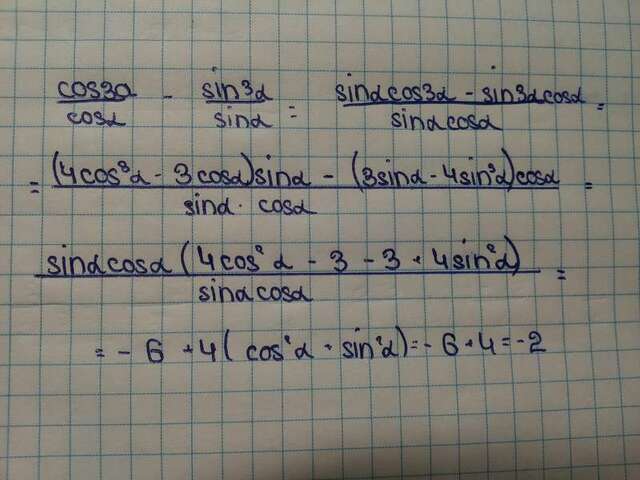 cos3α/cosα - sin3α/sinα = (sinαcos3α - sin3αcosα)/(sinαcosα) =
= ((4cos³α - 3cosα)sinα - (3sinα - 4sin³α)cosα)/(sinα · cosα) =
(sinαcosα(4cos²α - 3 - 3 + 4sin²α))/(sinαcosα) =
= - 6 + 4(cos²α + sin²α) = - 6 + 4 = -2